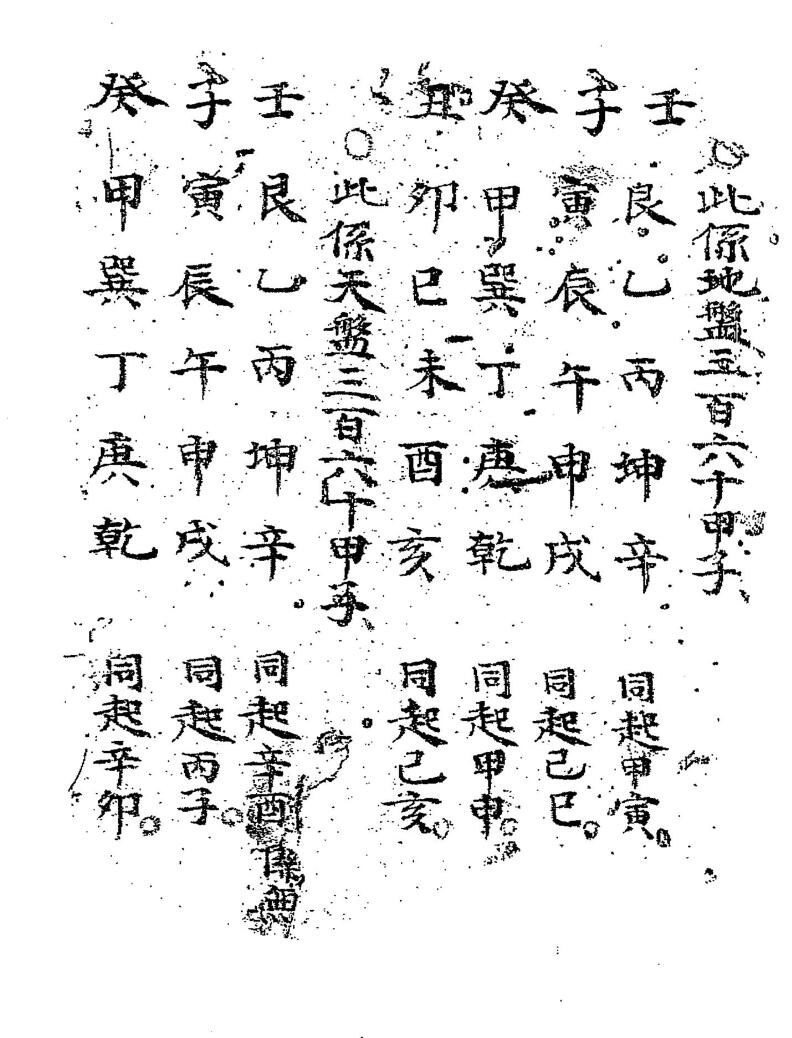 ○此係地盤三百六十甲子、
壬艮乙丙坤辛 同起甲寅。
子寅辰午申戌 同起己巳。
癸甲巽丁庚乾 同起甲申。
丑卯巳未酉亥 同起己亥。
○此係天盤三百六十甲子、
壬艮乙丙坤辛 同起辛酉係
子寅辰午申戌 同起丙子。
癸甲巽丁庚乾 同起辛卯。